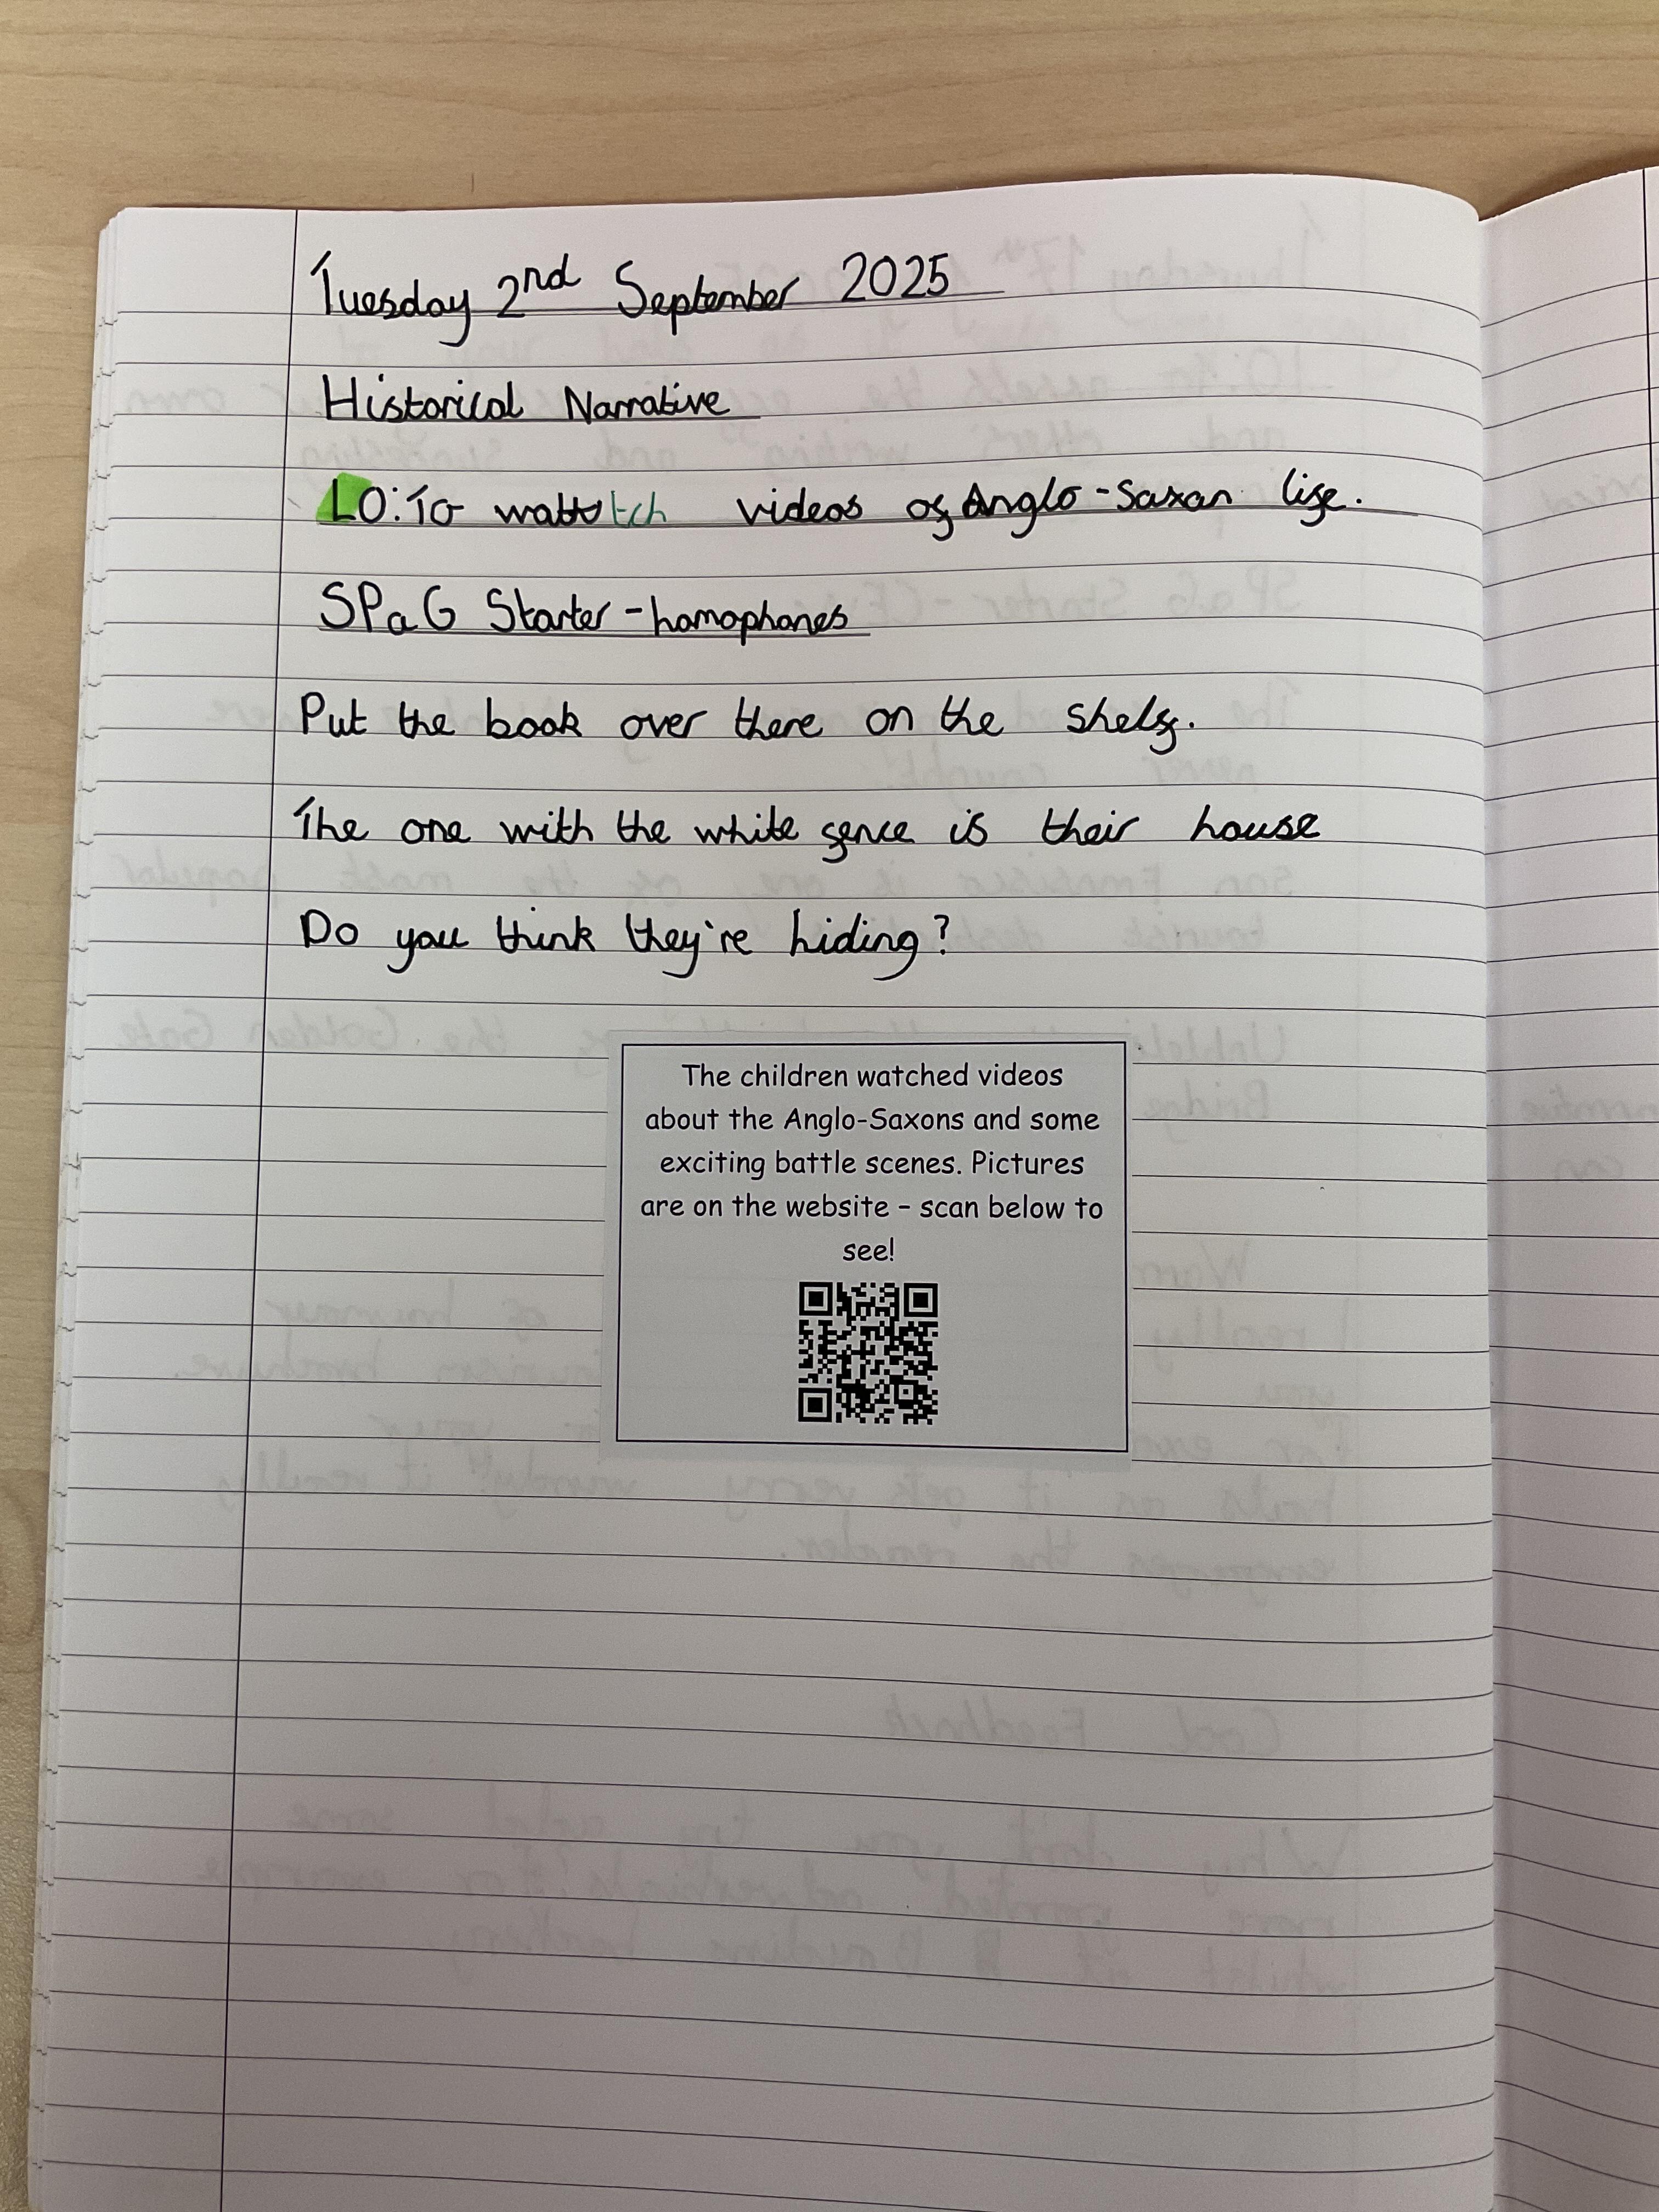 Tuesday 2nd September 2025
Historical Narrative
LO: To watch videos of Anglo-Saxan life.
SPaG Starter - homophones
Put the book over there on the shelf.
The one with the white fence is their house
Do you think they're hiding?
The children watched videos
about the Anglo-Saxons and some
exciting battle scenes. Pictures
are on the website – scan below to
see!